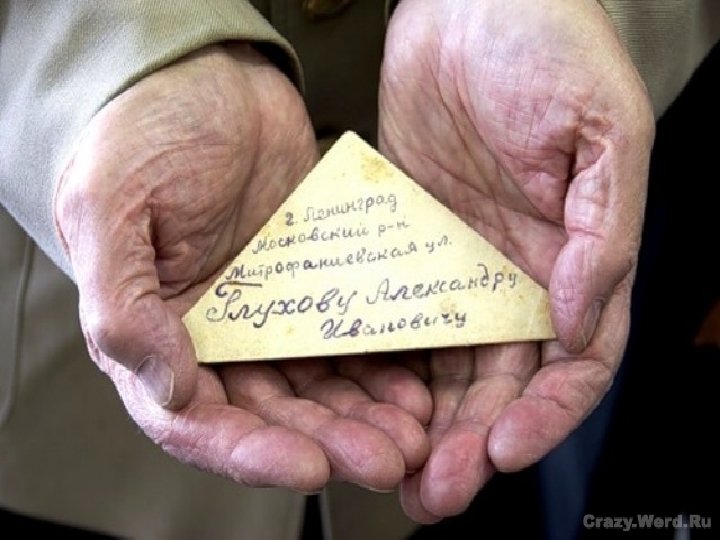 г. Ленинград
Московский р-н
Митрофаниевская ул.
Глухову Александру
Ивановичу
Crazy.Werd.Ru